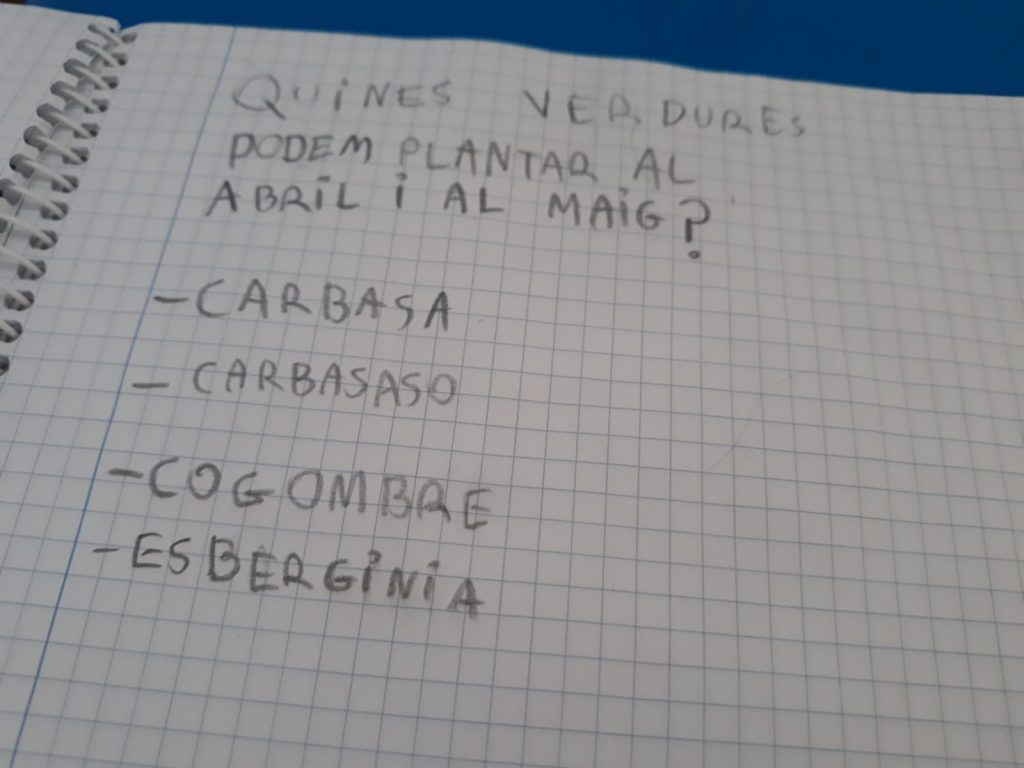 QUINES VERDURES
PODEM PLANTAR AL
ABRIL I AL MAIG?
- CARBASA
- CARBASASO
- COGOMBRE
- ESBERGINIA